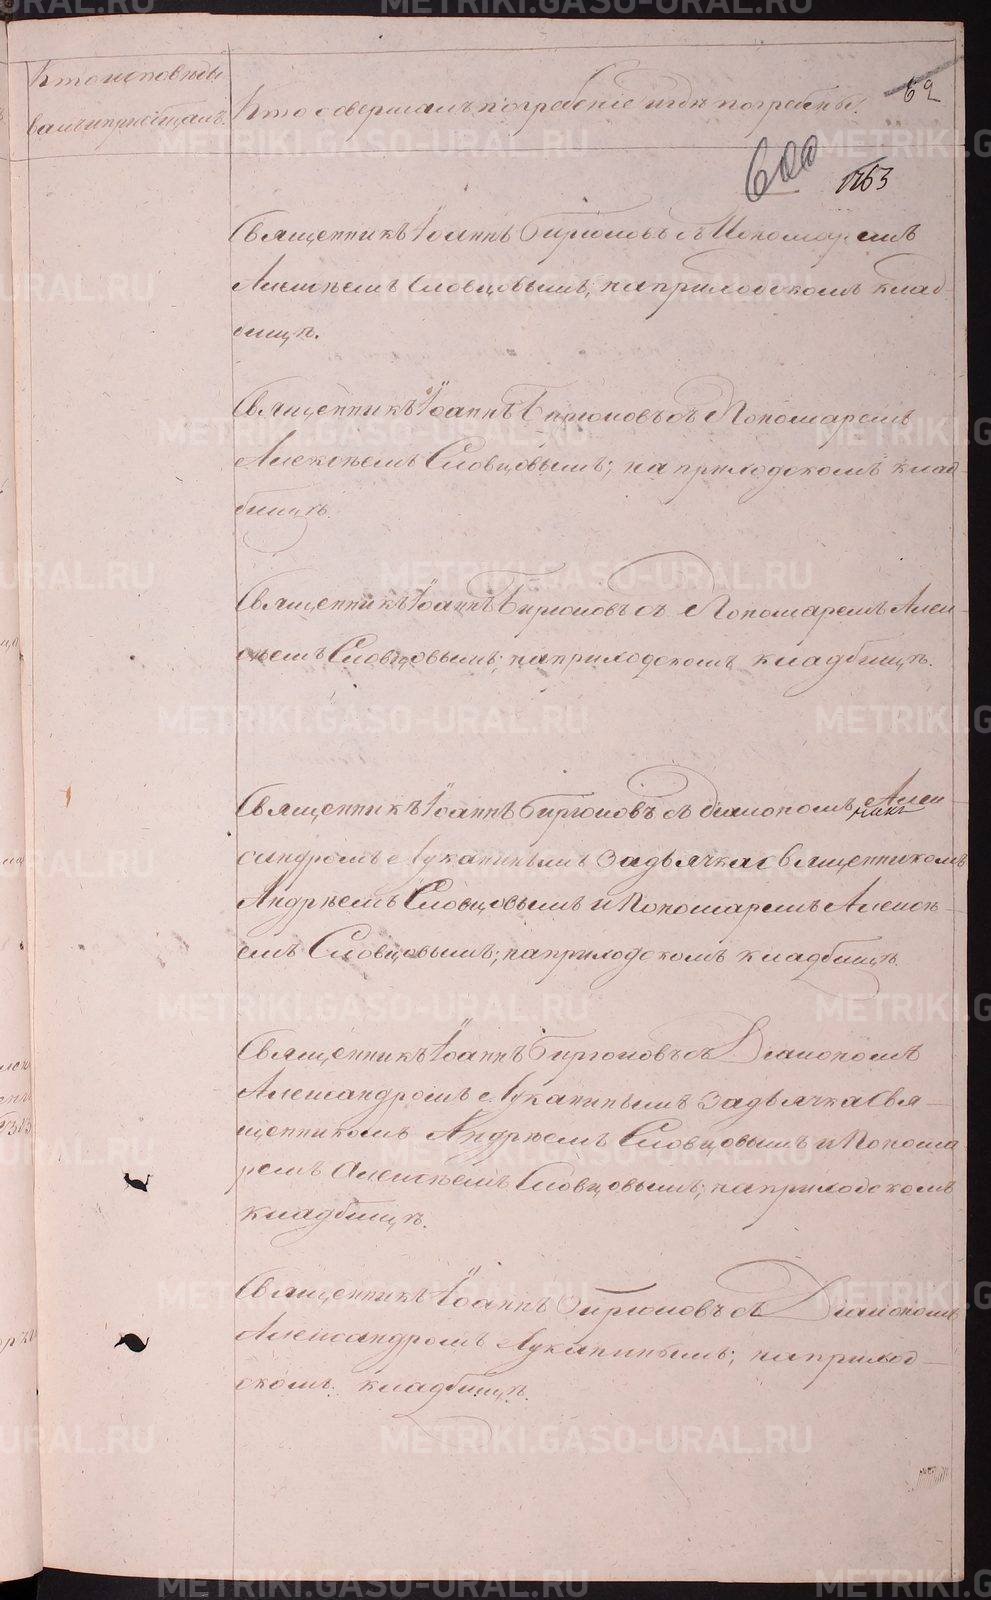 Кто исповѣды
валъ и пріобщалъ.
Кто совершалъ погребеніе и гдѣ погребены.
62
600
1263
Священникъ Іоаннъ Бирюковъ съ Пономаремъ
Алексѣемъ Словцовымъ; на приходскомъ клад-
бищѣ.
Священникъ Іоаннъ Бирюковъ съ Пономаремъ
Алексѣемъ Словцовымъ; на приходскомъ клад-
бищѣ.
Священникъ Іоаннъ Бирюковъ съ Пономаремъ Алек-
сѣемъ Словцовымъ; на приходскомъ кладбищѣ.
Священникъ Іоаннъ Бирюковъ съ діакономъ Алек-
сандромъ Луканинымъ задьячка священникомъ
Андреемъ Словцовымъ и Пономаремъ Алексѣ-
емъ Словцовымъ; на приходскомъ кладбищѣ.
Священникъ Іоаннъ Бирюковъ съ Діакономъ
Александромъ Луканинымъ задьячка свя-
щенникомъ Андреемъ Словцовымъ и Понома
ремъ Алексѣемъ Словцовымъ; на приходскомъ
кладбищѣ.
Священникъ Іоаннъ Бирюковъ съ Діакономъ
Александромъ Луканинымъ; на приход-
скомъ кладбищѣ.
METRIKI.GASO-URAL.RU